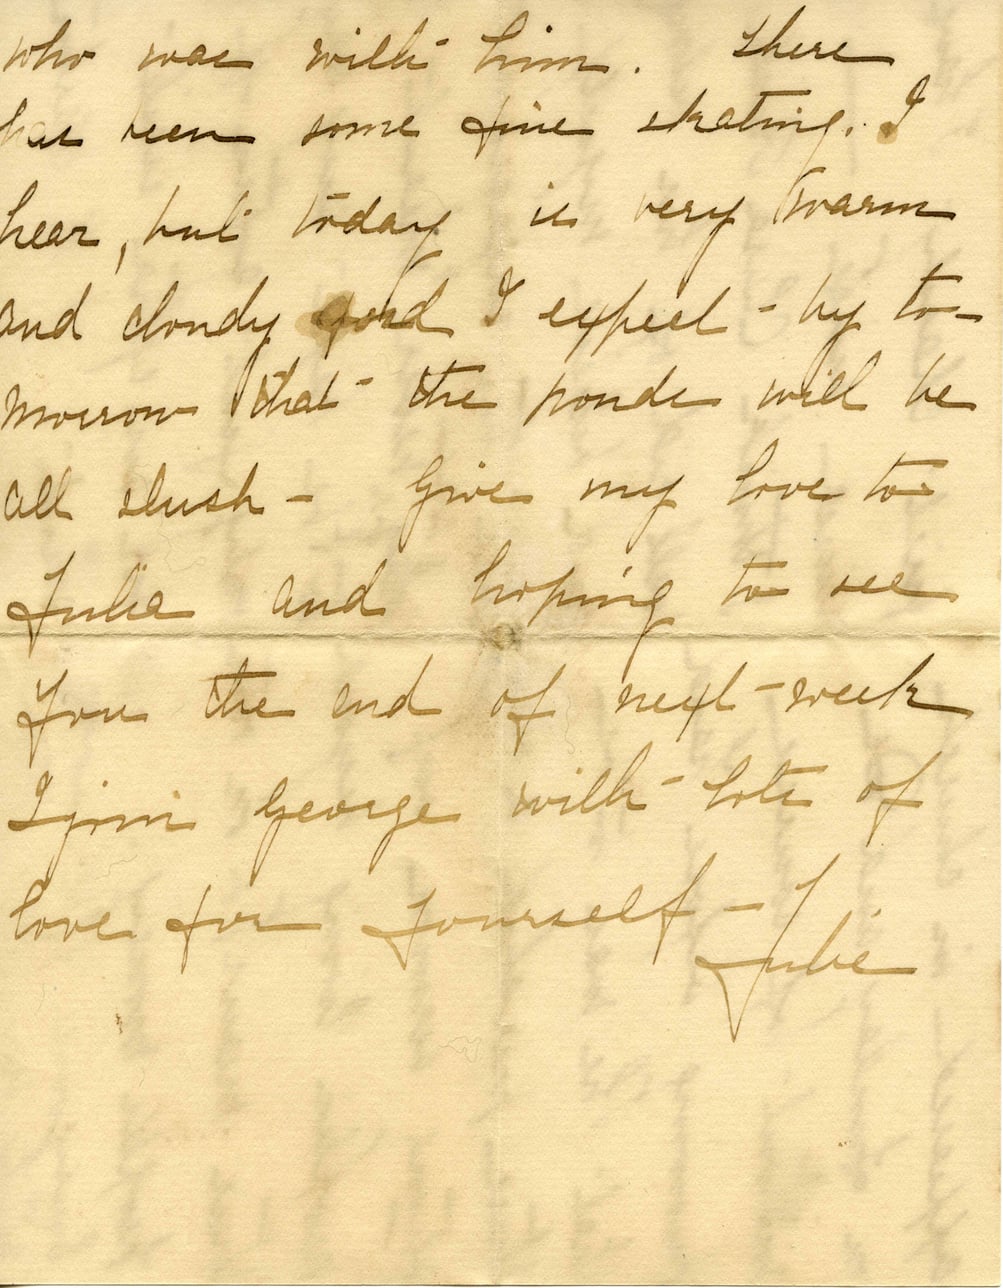 who was with him. There
has been some fine skating. I
hear, but today is very warm
and cloudy and I expect - by to-
morrow that the ponds will be
all slush - Give my love to
Julia and hoping to see
you the end of next week
I join George with lots of
love for yourself -
Julie